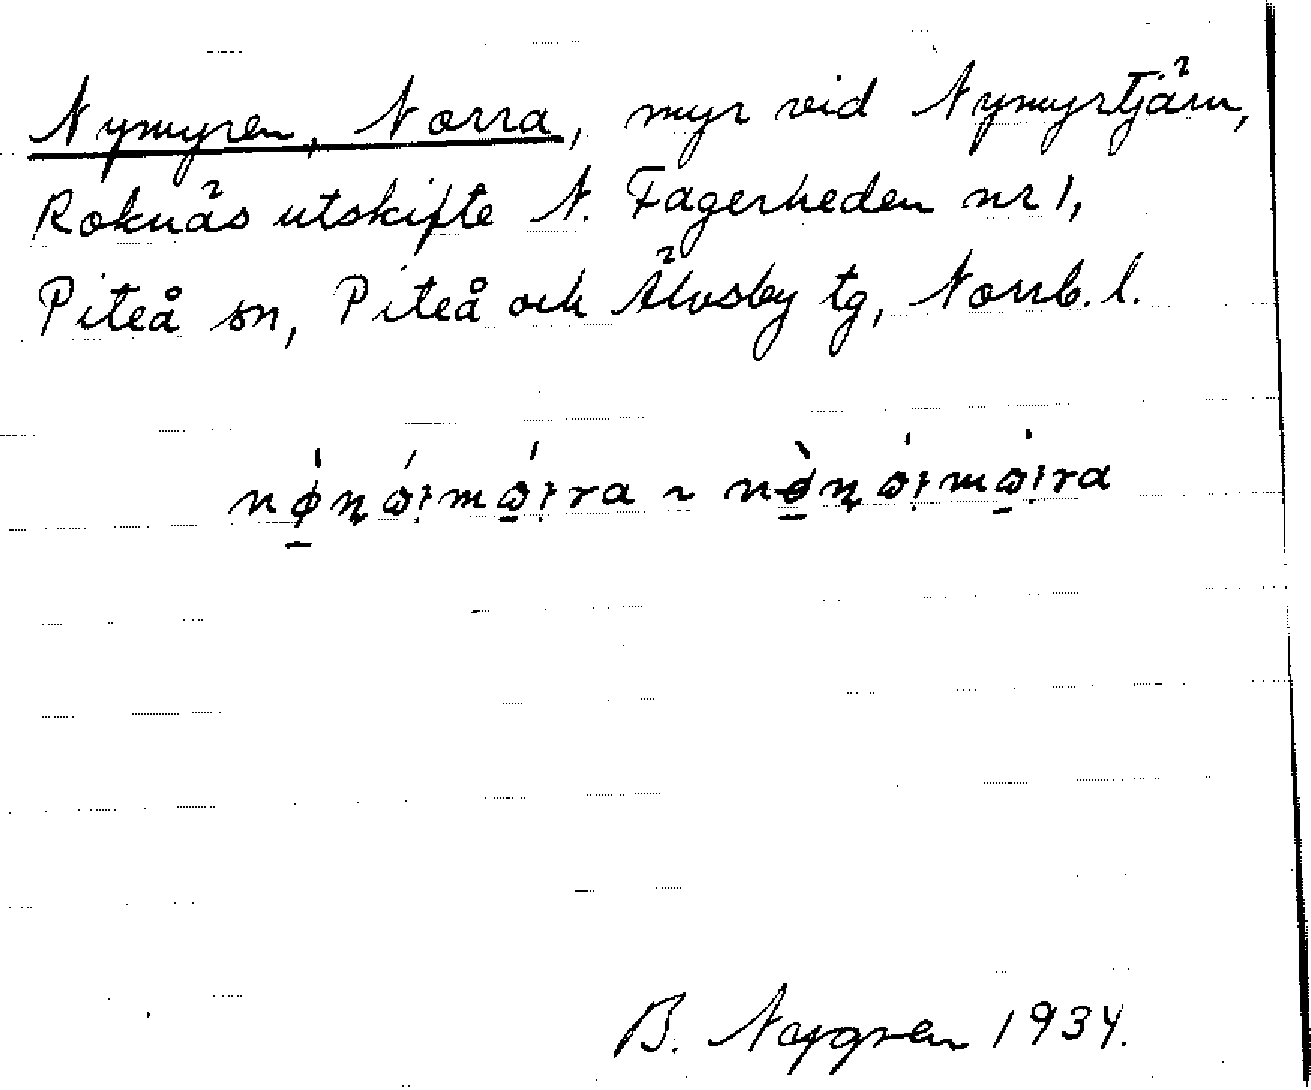 Nymyren, Norra, myr vid Nymyrtjärn,
Roknäs utskifte N. Fagerheden nr 1,
Piteå sn, Piteå och Älvsby tg, Norrb. l.
B. Nafgren 1934.